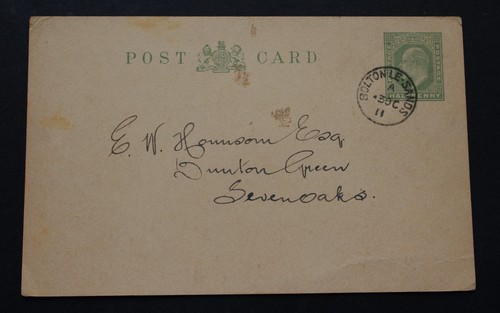 POST CARD
POSTAGE
HALFPENNY
BOLTON-LE-SANDS
A
30 OC
11
E. W. Hounsom Esq.
Dunton Green
Sevenoaks.